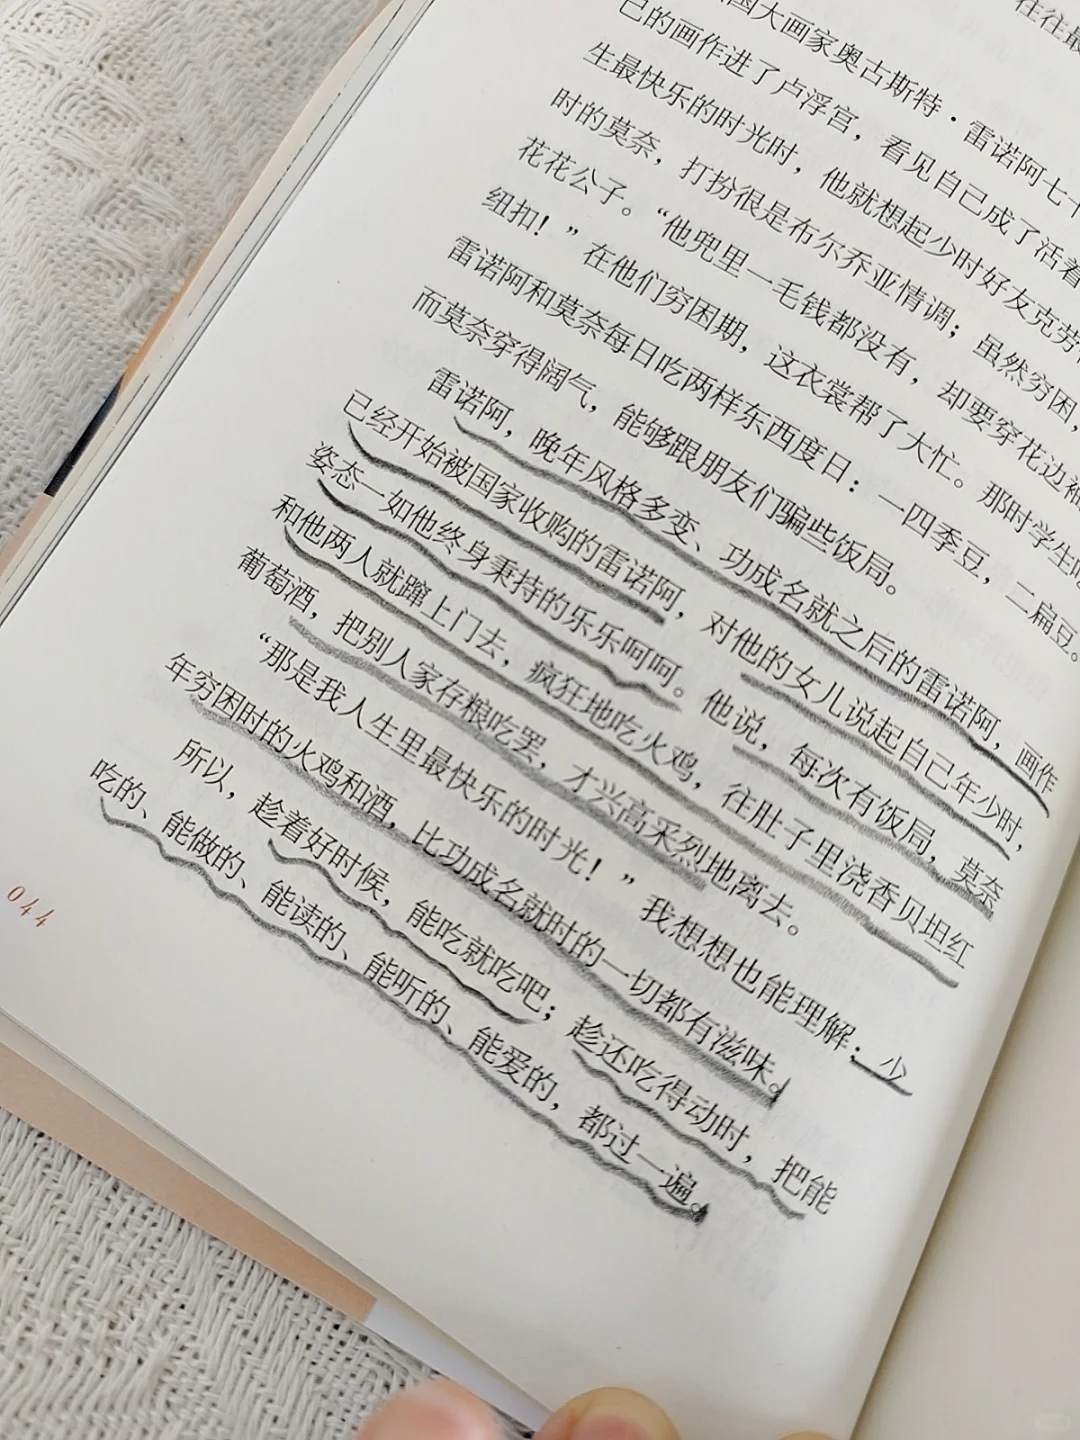 往往最
国大画家奥古斯特·雷诺阿七十
己的画作进了卢浮宫，看见自己成了活着
生最快乐的时光时，他就想起少时好友克劳
时的莫奈，打扮很是布尔乔亚情调；虽然穷困，
花花公子。“他兜里一毛钱都没有，却要穿花边袖
纽扣！”在他们穷困期，这衣裳帮了大忙。那时学生
雷诺阿和莫奈每日吃两样东西度日：一四季豆，二扁豆。
而莫奈穿得阔气，能够跟朋友们骗些饭局。
雷诺阿，晚年风格多变、功成名就之后的雷诺阿，画作
已经开始被国家收购的雷诺阿，对他的女儿说起自己年少时，
姿态一如他终身秉持的乐乐呵呵。他说，每次有饭局，莫奈
和他两人就蹿上门去，疯狂地吃火鸡，往肚子里浇香贝坦红
葡萄酒，把别人家存粮吃罢，才兴高采烈地离去。
“那是我人生里最快乐的时光！”我想想也能理解：少
年穷困时的火鸡和酒，比功成名就时的一切都有滋味。
所以，趁着好时候，能吃就吃吧；趁还吃得动时，把能
吃的、能做的、能读的、能听的、能爱的，都过一遍。
044